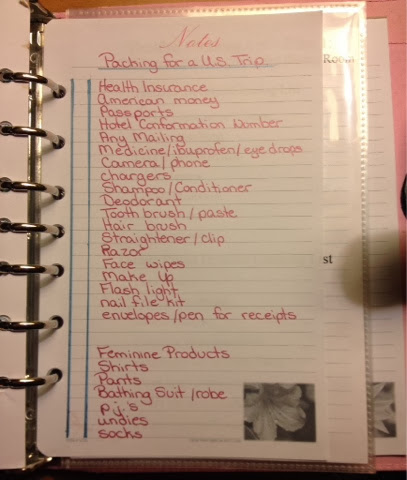 Notes
Packing for a U.S. Trip
Room
Health Insurance
american money
Passports
Hotel Conformation Number
Any Mailing
Medicine/ibuprofen/eye drops
Camera/phone
chargers
Shampoo/Conditioner
Deodorant
Tooth brush/paste
Hair brush
Straightener/clip
Razor
st
Face wipes
Make Up
Flash light
nail file kit
envelopes/pen for receipts
Feminine Products
Shirts
Pants
Bathing Suit/robe
p.j.'s
undies
socks